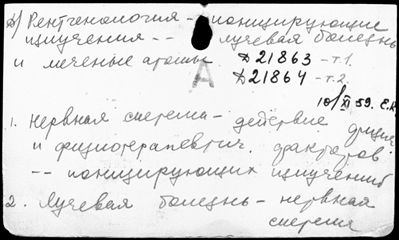 А) Рентгенология - ионизирующие
излучения -- лучевая болезнь
и меченые атомы Д 21863 - т.1.
А
Д 21864 - т.2.
10/XI 59.
1. Нервная система - действие физич.
и физиотерапевтич. факторов
-- ионизирующих излучений
2. Лучевая болезнь - нервная
система